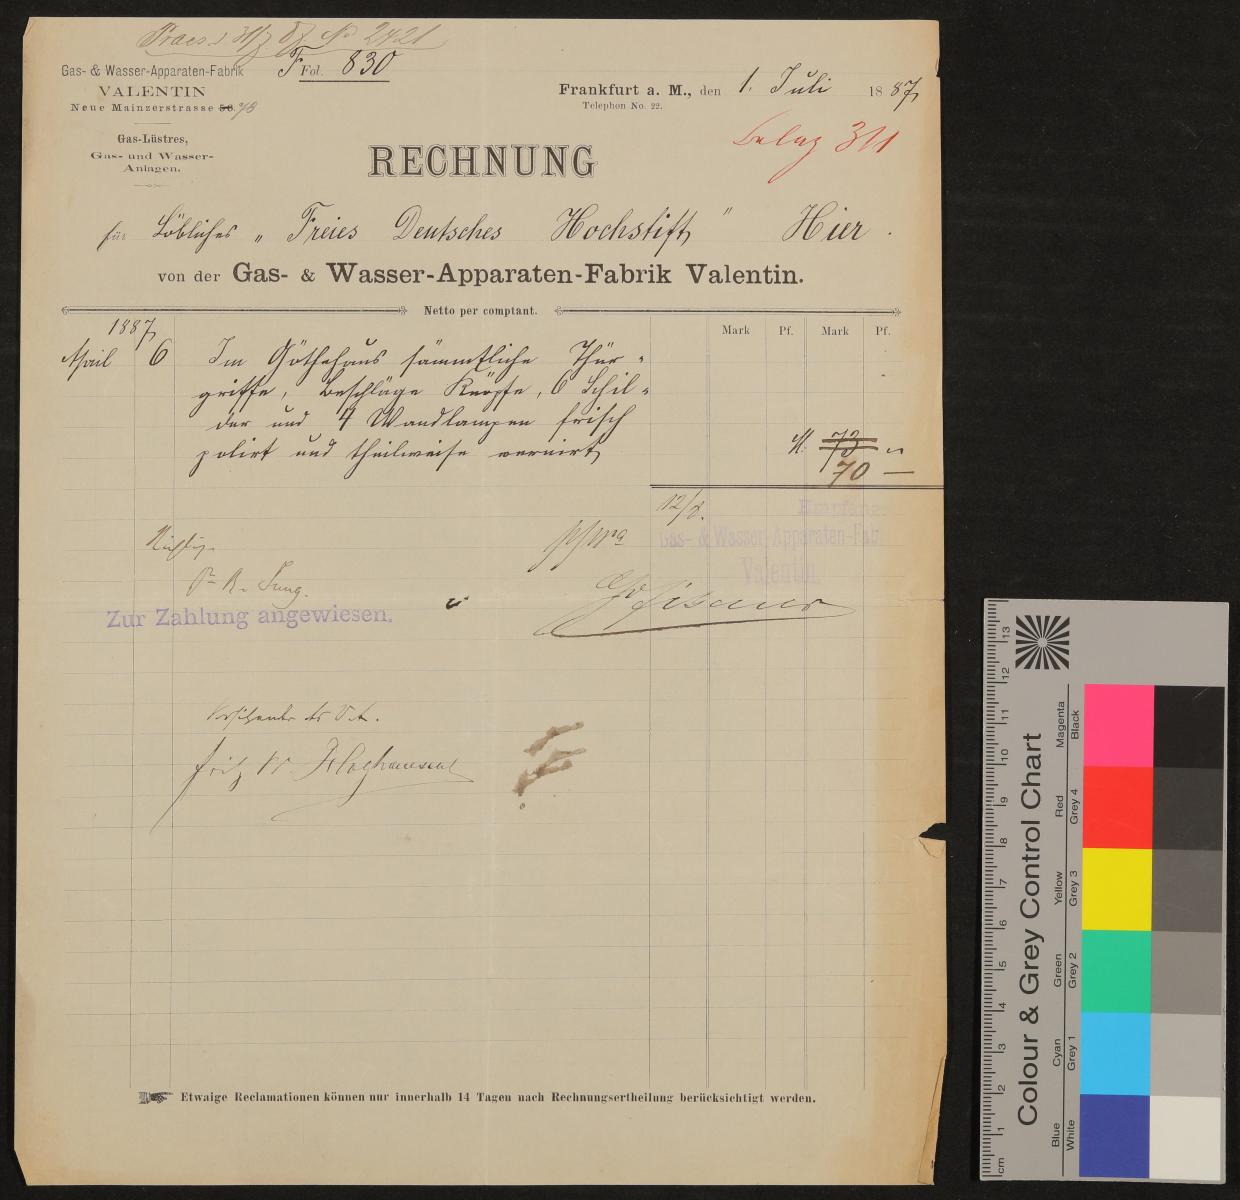 Praes. 31/7 87. No 2421
Gas- & Wasser-Apparaten-Fabrik
F Fol. 830
VALENTIN
Neue Mainzerstrasse 58. 78
Frankfurt a. M., den 1. Juli 1887
Telephon No. 22.
Gas-Lüstres,
Gas- und Wasser-
Anlagen.
Beleg 311
RECHNUNG
für Löbliches „Freies Deutsches Hochstift" Hier.
von der Gas- & Wasser-Apparaten-Fabrik Valentin.
Netto per comptant.
Mark Pf. Mark Pf.
1887
April 6 Im Göthehaus sämmtliche Thür-
griffe, Beschläge Knöpfe, 6 Schil-
der und 4 Wandlampen frisch
polirt und theilweise vernirt
M. 73 "
70 —
12/8.
Empfangen
Gas- & Wasser-Apparaten-Fabrik
Valentin.
Richtig.
Zur Zahlung angewiesen.
Etwaige Reclamationen können nur innerhalb 14 Tagen nach Rechnungsertheilung berücksichtigt werden.
cm 1 2 3 4 5 6 7 8 9 10 11 12 13
Colour & Grey Control Chart
Blue Cyan Green Yellow Red Magenta
White Grey 1 Grey 2 Grey 3 Grey 4 Black